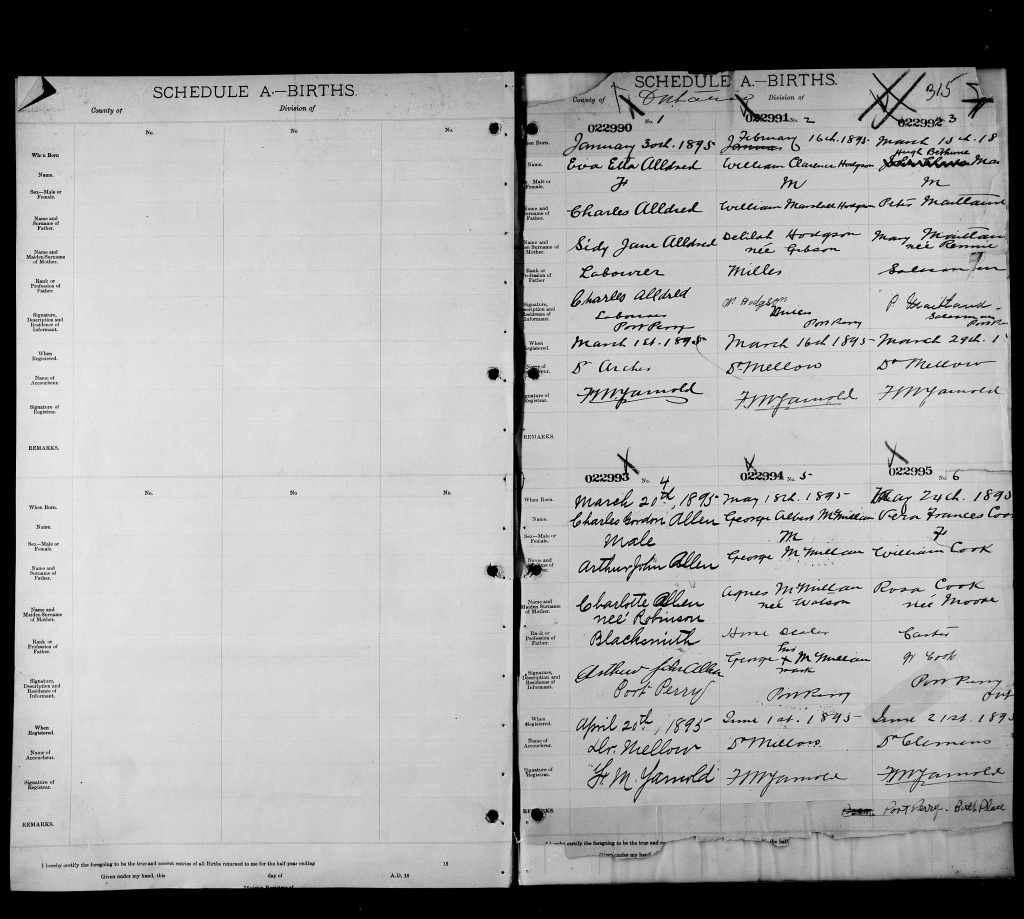 SCHEDULE A.—BIRTHS.
County of
Division of
No.
No
No.
When Born
Name.
Sex—Male or
Female.
Name and
Surname of
Father.
Name and
Maiden Surname
of Mother.
Rank or
Profession of
Father
Signature,
Description and
Residence of
Informant.
When
Registered.
Name of
Accoucheur.
Signature of
Registrar.
REMARKS.
No.
No
No.
When Born.
Name.
Sex—Male or
Female.
Name and
Surname of
Father.
Name and
Maiden Surname
of Mother.
Rank or
Profession of
Father.
Signature,
Description and
Residence of
Informant.
When
Registered.
Name of
Accoucheur.
Signature of
Registrar.
REMARKS.
I hereby certify the foregoing to be the true and correct entries of all Births returned to me for the half-year ending 18
Given under my hand, this day of A.D. 18
Division Registrar of
SCHEDULE A.—BIRTHS.
County of Ontario Division of
315
022990 1 022991 No. 2 022992 3
January 30th. 1895 February 16th. 1895 March 15th. 18
Hugh Bethune
Name. Eva Etta Alldred William Clarence Hodgson Mai
Male or
Female. F M M
Name and
Surname of
Father. Charles Alldred William Marshall Hodgson Peter Maitland
Name and
Surname
of Mother. Sidy Jane Alldred Delilah Hodgson Mary Maitlan
née Gibson née Rennie
Rank or
Profession of
Father Labourer Miller Salesman
Signature,
Description and
Residence of
Informant. Charles Alldred W Hodgson P Maitland
Labourer Miller Salesman
Port Perry Port Perry Port Pe
When
Registered. March 1st. 1895 March 16th 1895 March 29th. 1
Dr Archer Dr Mellow Dr Mellow
Signature of
Registrar. F M Yarnold F M Yarnold F M Yarnold
REMARKS.
022993 No. 4 022994 No. 5 022995 No 6
When Born. March 20th, 1895 May 18th. 1895 May 24th. 1895
Name. Charles Gordon Allen George Albert McMillan Vera Frances Coo
Sex—Male or
Female. Male M F
Name and
Surname of
Father. Arthur John Allen George McMillan William Cook
Name and
Maiden Surname
of Mother. Charlotte Allen Agnes McMillan Rosa Cook
neé Robinson neé Watson neé Moore
Rank or
Profession of
Father. Blacksmith Horse Dealer Carter
Signature,
Description and
Residence of
Informant. Arthur John Allen George his x mark McMillan W Cook
Port Perry Port Perry Port Perry
Ont
When
Registered. April 20th, 1895 June 1st. 1895 June 21st. 1895
Name of
Accoucheur. Dr. Mellow Dr Mellow Dr Clemens
Signature of
Registrar. F. M. Yarnold F M Yarnold F M Yarnold
REMARKS. Port Perry - Birth Place
hereby certify the foregoing to be the true and
the half
Given under my hand, this